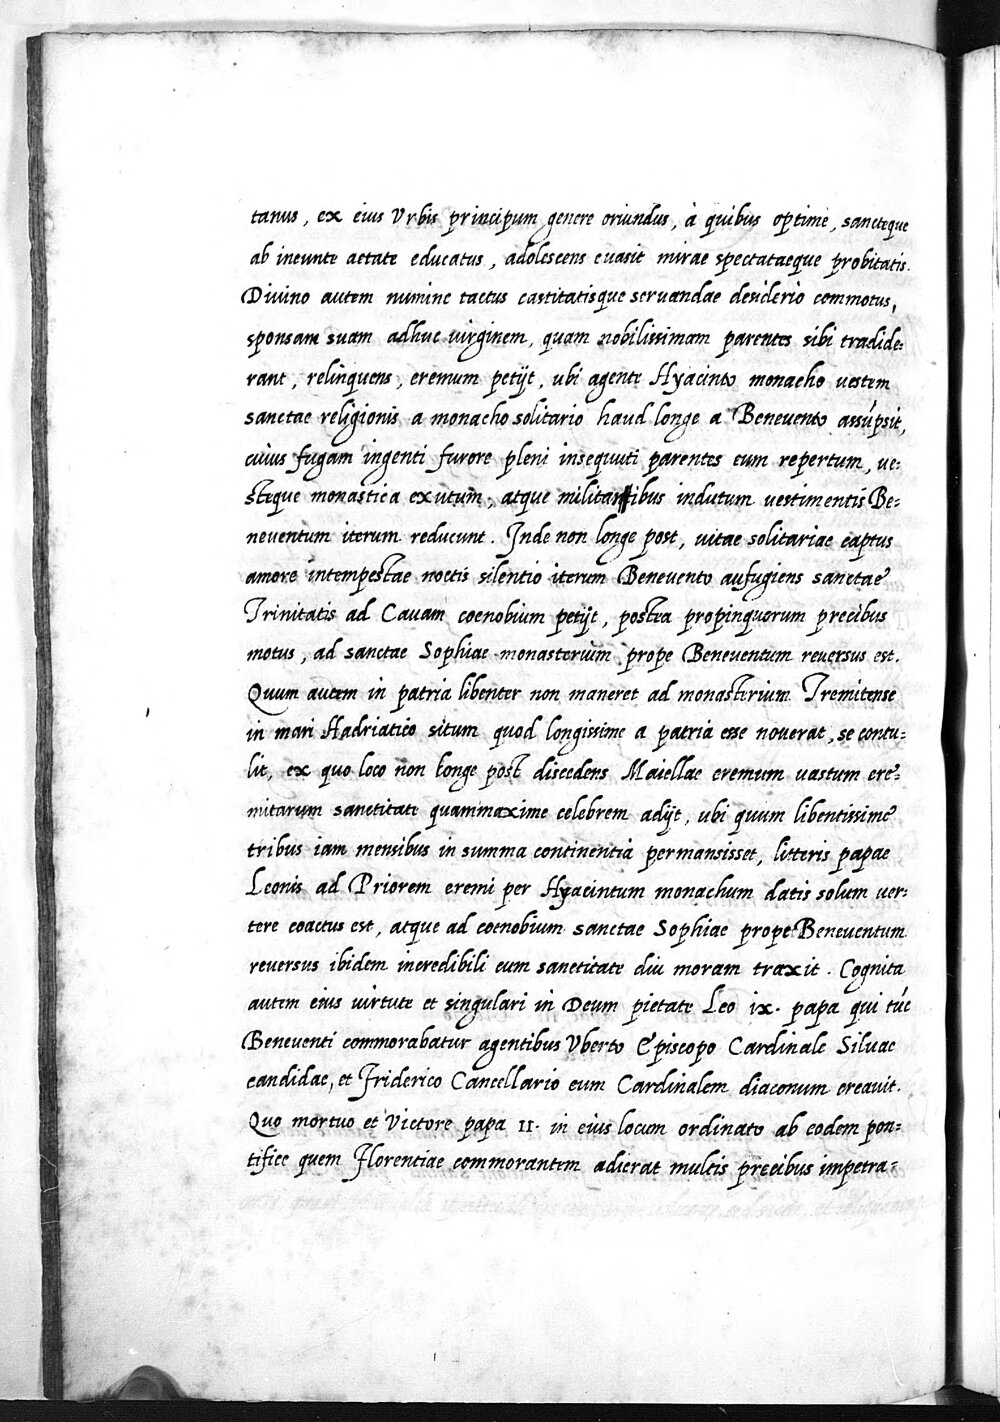 tanus, ex eius Vrbis principum genere oriundus, à quibus optime, sancteque
ab ineunte aetate educatus, adolescens euasit mirae spectataeque probitatis.
Diuino autem numine tactus castitatisque seruandae desiderio commotus,
sponsam suam adhuc uirginem, quam nobilissimam parentes sibi tradide-
rant, relinquens, eremum petijt, ubi agente Hyacinto monacho uestem
sanctae religionis a monacho solitario haud longe a Beneuento assúpsit,
cuius fugam ingenti furore pleni insequuti parentes eum repertum, ue-
steque monastica exutum, atque militaribus indutum uestimentis Be-
neuentum iterum reducunt. Inde non longe post, uitae solitariae captus
amore intempestae noctis silentio iterum Beneuento aufugiens sanctae
Trinitatis ad Cauam coenobium petijt, postea propinquorum precibus
motus, ad sanctae Sophiae monasterium prope Beneuentum reuersus est.
Quum autem in patria libenter non maneret ad monasterium Tremitense
in mari Hadriatico situm quod longissime a patria esse nouerat, se contu-
lit, ex quo loco non longe post discedens Maiellae eremum uastum ere-
mitarum sanctitate quammaxime celebrem adijt, ubi quum libentissime
tribus iam mensibus in summa continentia permansisset, litteris papae
Leonis ad Priorem eremi per Hyacintum monachum datis solum uer-
tere coactus est, atque ad coenobium sanctae Sophiae prope Beneuentum
reuersus ibidem incredibili cum sanctitate diu moram traxit. Cognita
autem eius uirtute et singulari in Deum pietate Leo ix. papa qui túc
Beneuenti commorabatur agentibus Vberto Episcopo Cardinale Siluae
candidae, et Friderico Cancellario eum Cardinalem diaconum creauit.
Quo mortuo et Victore papa II. in eius locum ordinato ab eodem pon-
tifice quem Florentiae commorantem adierat multis precibus impetra-